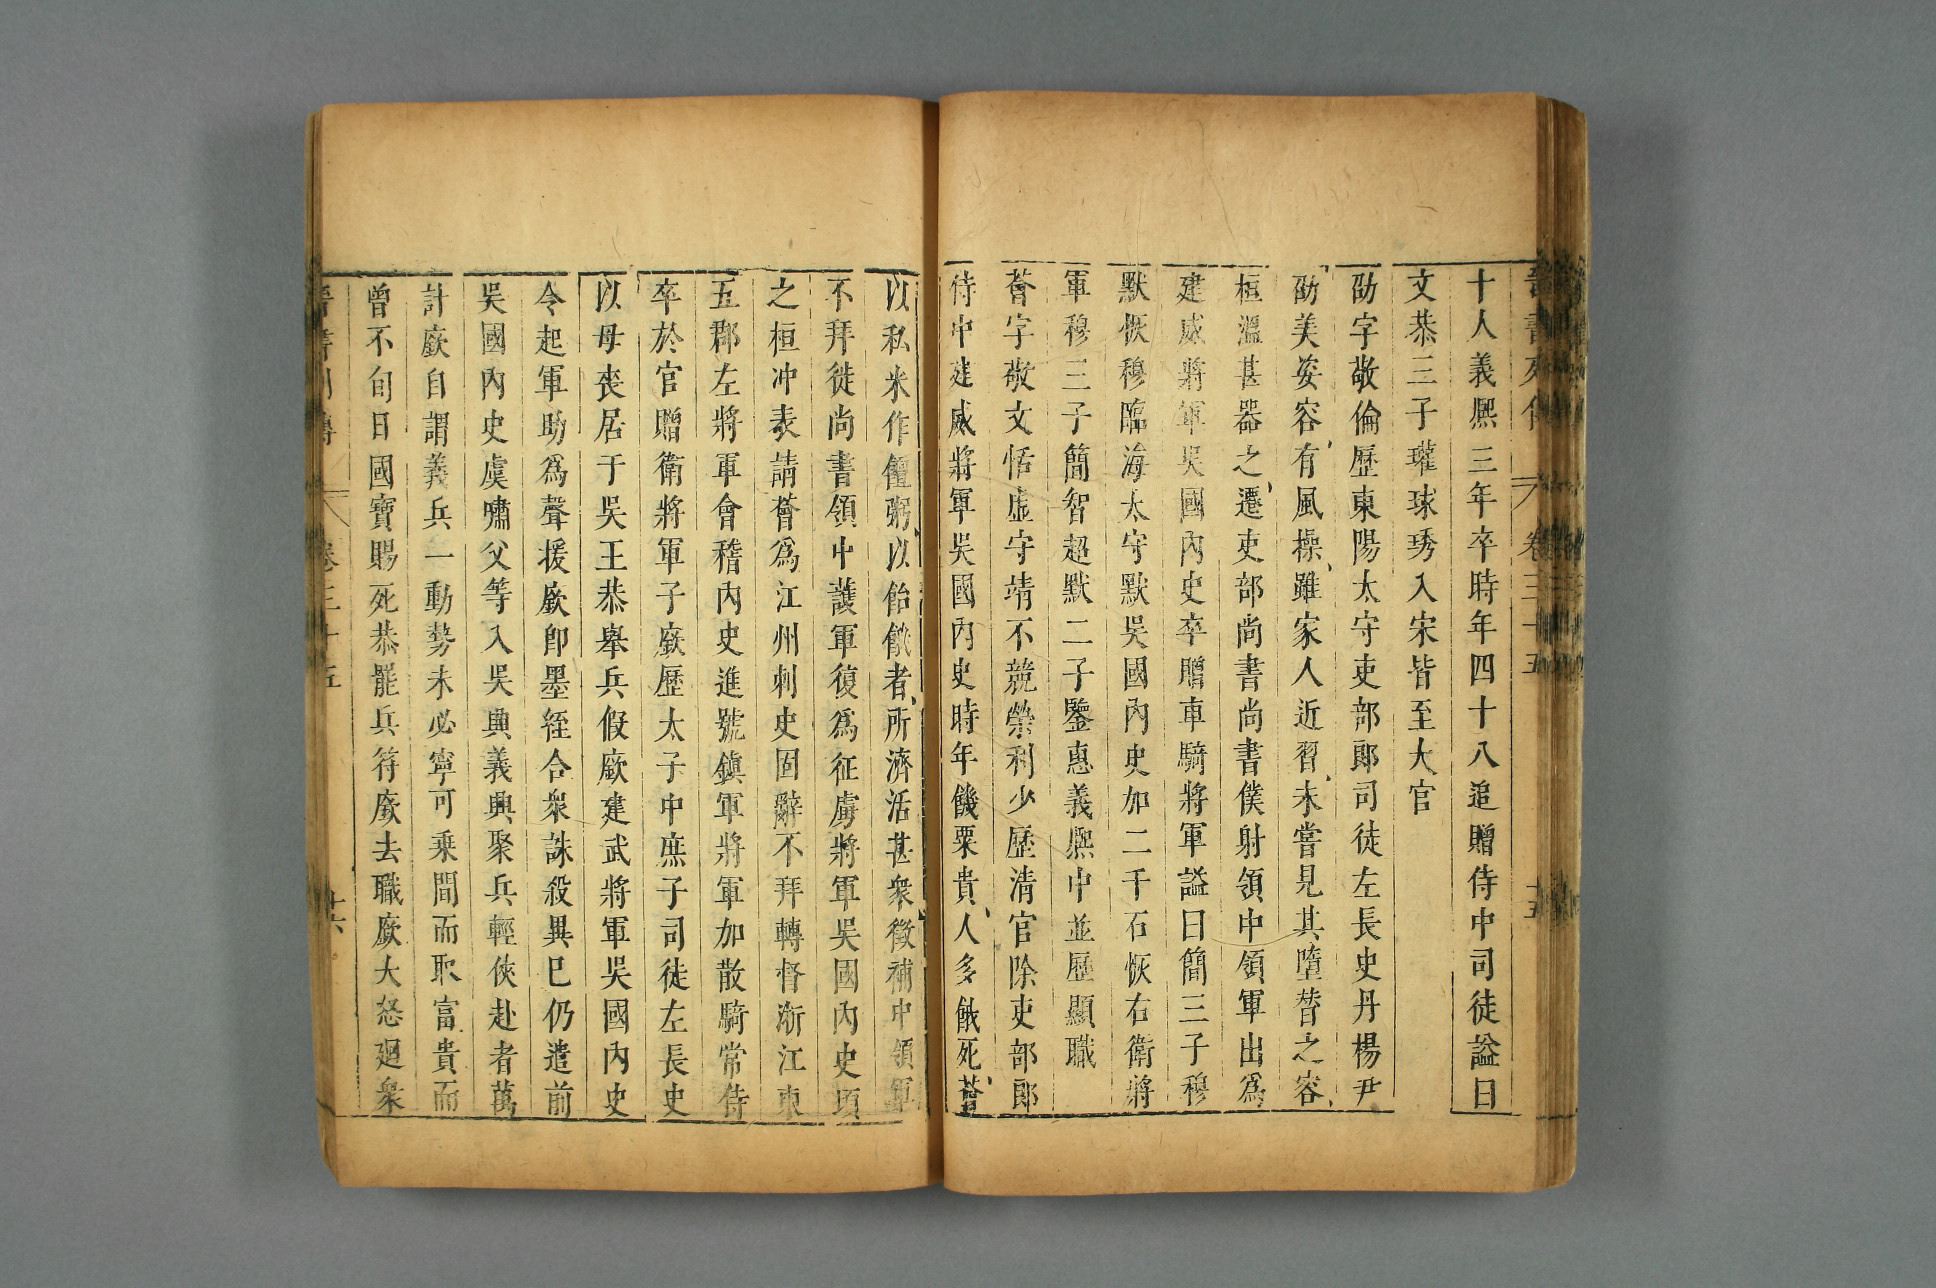 晉書列傳 卷三十五 十五
十人義熙三年卒時年四十八追贈侍中司徒謚曰
文恭三子瓘球琇入宋皆至大官
劭字敬倫歷東陽太守吏部郞司徒左長史丹楊尹
劭美姿容有風操雖家人近習未嘗見其墮替之容
桓溫甚器之遷吏部尚書尚書僕射領中領軍出爲
建威將軍吳國內史卒贈車騎將軍謚曰簡三子穆
默恢穆臨海太守默吳國內史加二千石恢右衛將
軍穆三子簡智超默二子鑒惠義熙中並歷顯職
薈字敬文恬虛守靖不競榮利少歷清官除吏部郞
侍中建威將軍吳國內史時年饑粟貴人多餓死薈
以私米作饘粥以飴餓者所濟活甚衆徵補中領軍
不拜徙尚書領中護軍復爲征虜將軍吳國內史頃
之桓冲表請薈爲江州刺史固辭不拜轉督浙江東
五郡左將軍會稽內史進號鎭軍將軍加散騎常侍
卒於官贈衛將軍子廞歷太子中庶子司徒左長史
以母喪居于吳王恭舉兵假廞建武將軍吳國內史
令起軍助爲聲援廞卽墨絰合衆誅殺異已仍遣前
吳國內史虞嘯父等入吳興義興聚兵輕俠赴者萬
計廞自謂義兵一動勢未必寧可乗間而取富貴而
曾不旬日國寶賜死恭罷兵符廞去職廞大怒廻衆
晉書列傳 卷三十五 十六